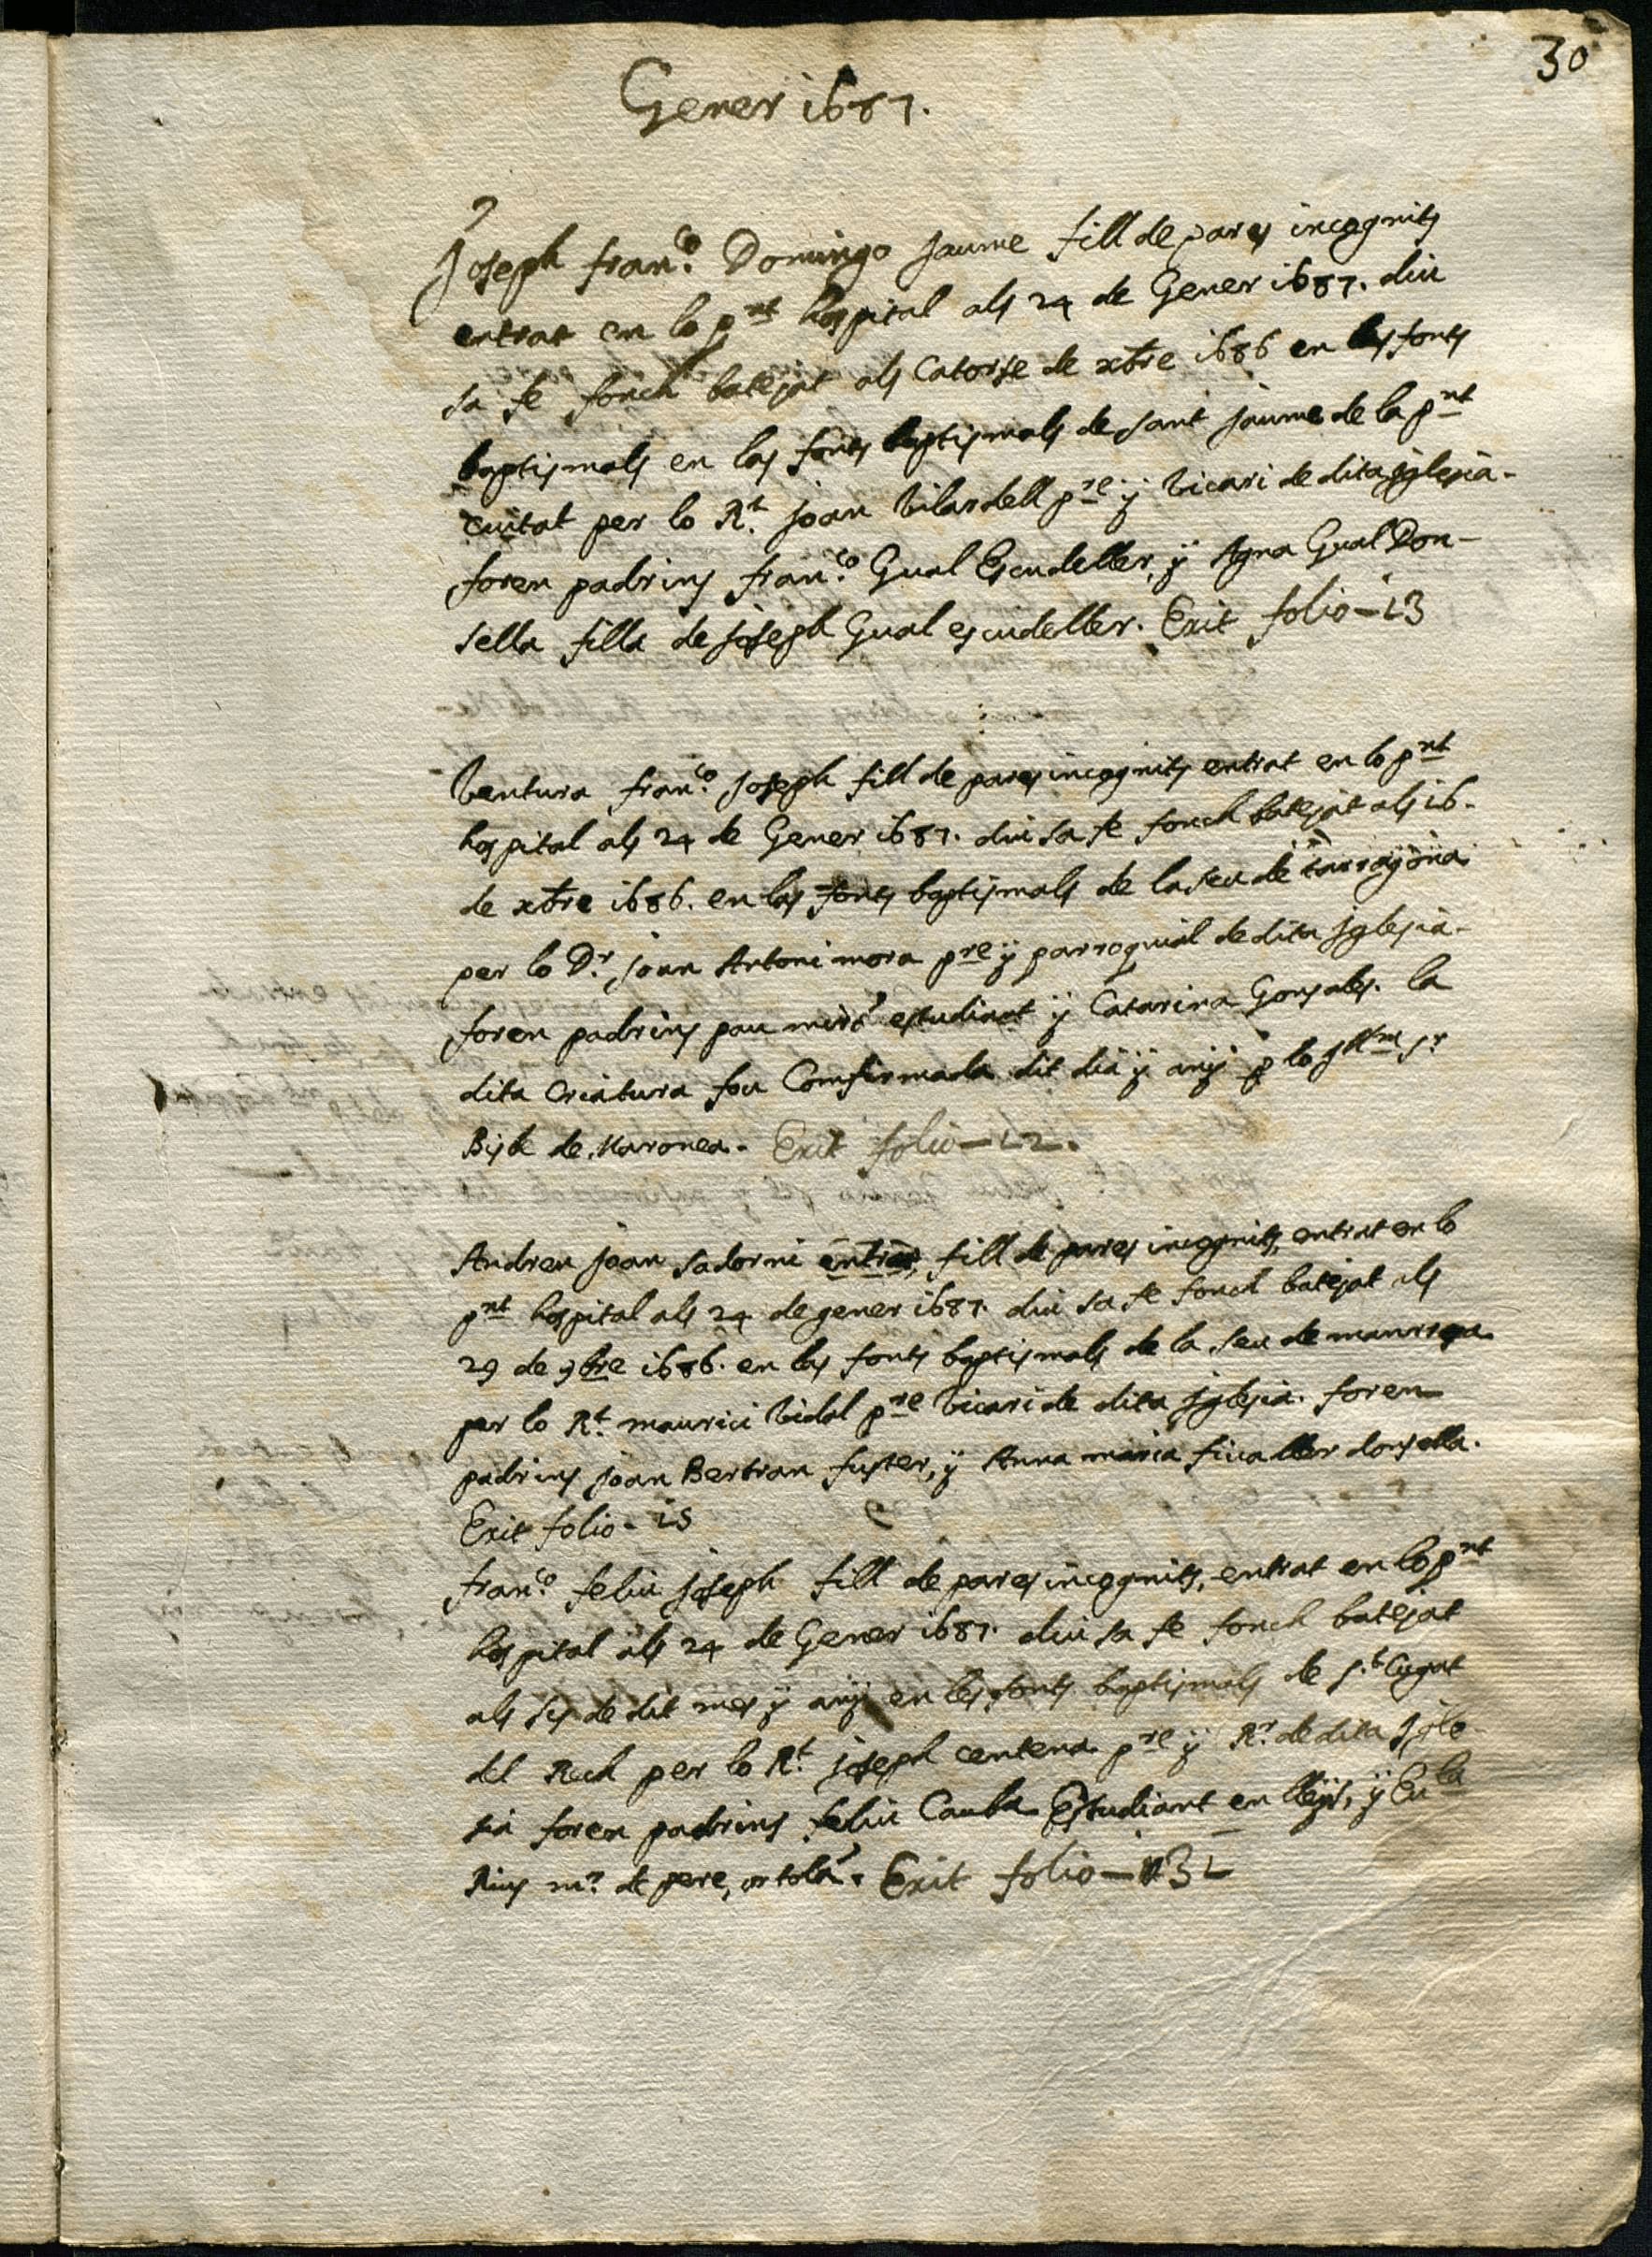 30
Gener 1687.
Joseph fran.co Domingo Jaume fill de pares incognits
entrat en lo pnt hospital als 24 de Gener 1687. diu
sa fe fonch batejat als Catorse de xbre 1686 en las fonts
baptismals en las fonts baptismals de sant Jaume de la pnt
Ciutat per lo Rt. Joan Vilardell pre. y Vicari de dita Iglesia.
foren padrins fran.co Gual Escudeller, y Agna Gual Don-
sella filla de Joseph Gual escudeller. Exit folio-13
Ventura fran.co Joseph fill de pares incognits entrat en lo pnt
hospital als 24 de Gener 1687. diu sa fe fonch batejat als 16.
de xbre 1686. en las fonts baptismals de la seu de tarragona
per lo Dr. Joan Antoni mora pre y parroquial de dita Iglesia.
foren padrins pau miró estudiant y Catarina Gonsales. la
dita Criatura fou Comfirmada dit dia y any p lo Illm Sr
Bisbe de Maronea. Exit folio-12.
Andreu Joan sadorni entrat, fill de pares incognits, entrat en lo
pnt hospital als 24 de gener 1687. diu sa fe fonch batejat als
29 de 9bre 1686. en las fonts baptismals de la seu de manresa
per lo Rt. maurici Vidal pre Vicari de dita Iglesia. foren
padrins Joan Bertran fuster, y Anna maria finaller donsella.
Exit folio-15
fran.co feliu Joseph fill de pares incognits, entrat en lo pnt
hospital als 24 de Gener 1687. diu sa fe fonch batejat
als sis de dit mes y any en les fonts baptismals de St. Cugat
del Rech per lo Rt. Joseph centena pre y Rr. de dita Igle-
sia foren padrins feliu Cauba Estudiant en lleys, y Eula
Rius mr. de pere, ortolá. Exit folio-31